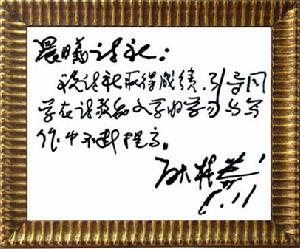 晨曦诗社：
祝诗社获得成绩，引导同
学在诗歌和文学的学习与写
作中不断提高。